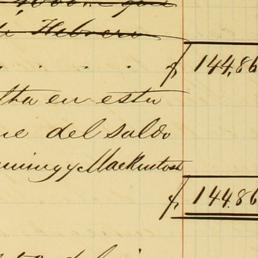 de Febrero
f 14486
tha en esta
ue del saldo
ming y MacKintosh
f 14486